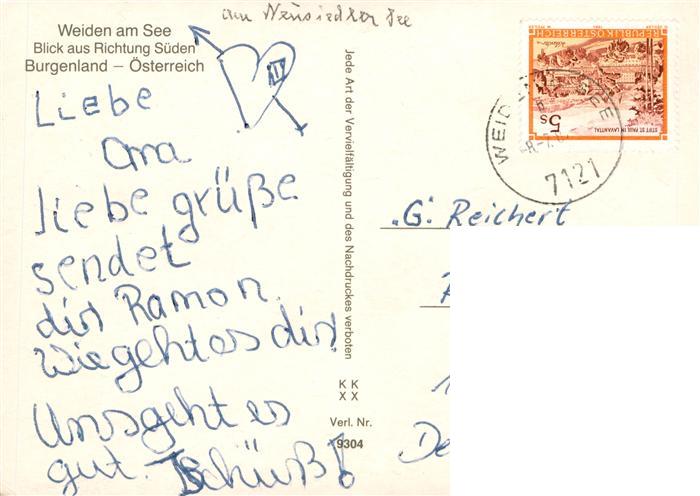 am Neusiedler See
Weiden am See
Blick aus Richtung Süden
Burgenland – Österreich
Liebe
Oma
liebe grüße
sendet
dir Ramon.
Wie geht es dir!
Uns geht es
gut. Tschüß!
Jede Art der Vervielfältigung und des Nachdruckes verboten
K K
X X
Verl. Nr.
9304
REPUBLIK ÖSTERREICH
5 S
STIFT ST. PAUL IM LAVANTTAL
WEID
SEE
7121
"G." Reichert
De